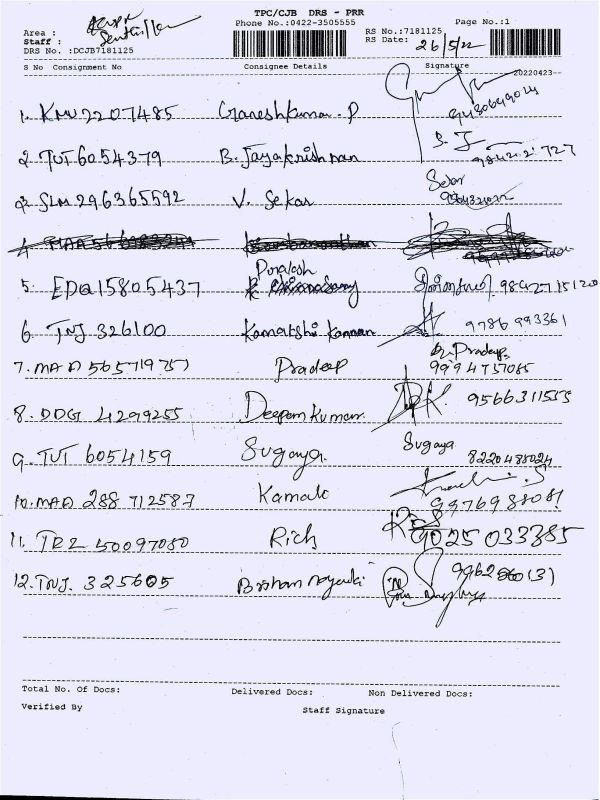 TPC/CJB DRS - PRR
Phone No.:0422-3505555 Page No.:1
Area :
Staff : Senthil
RS No.:7181125
DRS No. :DCJB7181125 RS Date: 26/5/22
S No Consignment No Consignee Details Signature
20220423--
1. KMU 2207485 Ganeshkumar.P
2. TUT 6054379 B. Jayakrishnan S. J
3. SLM 296365592 V. Sekar Sekar
4.
Puralesh
5. EDQ15805437 9842715120
6. TNJ 326100 Kamatshi Kannan 9786993361
7. MAA 565719757 Pradeep Pradeep 9994757085
8. DDG 4299255 Deepam Kumar 9566311555
9. TUT 6054159 Sugaya. Sugaya 8220485024
10. MAA 288712587 Kamalc 9976988081
11. TRZ 50097080 Rich 9025033385
12. TNJ. 325605
Total No. Of Docs: Delivered Docs: Non Delivered Docs:
Verified By Staff Signature